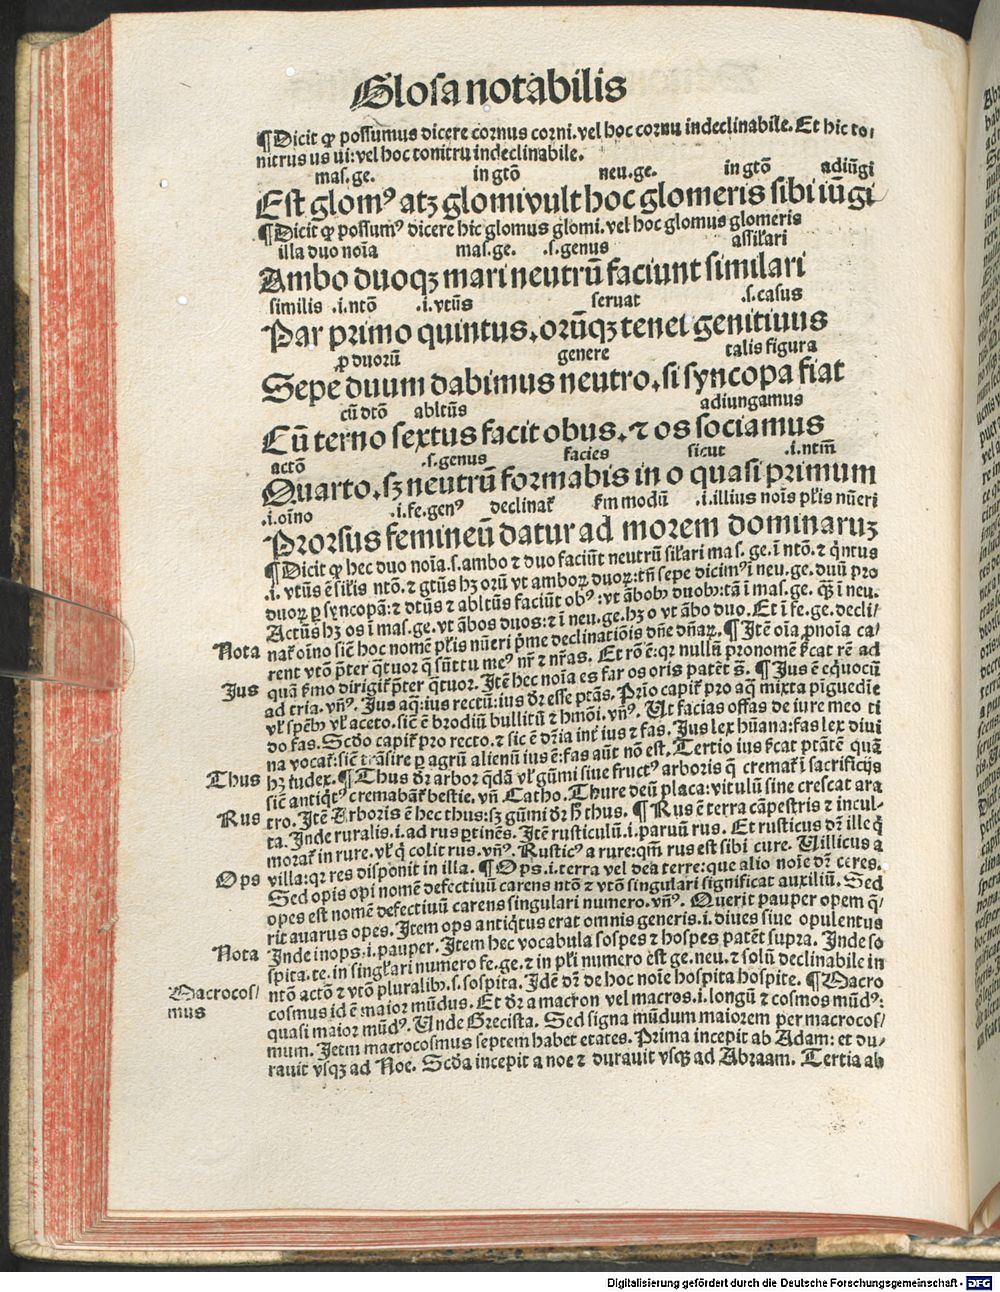 Glosa notabilis
¶Dicit ꝙ possumus dicere cornus corni. vel hoc cornu indeclinabile. Et hic to⸗
nitrus us ui: vel hoc tonitru indeclinabile.
mas. ge. in gtō neu. ge. in gtō adiūgi
Est glomꝰ atꝫ glomi vult hoc glomeris sibi iūgi
¶Dicit ꝙ possumꝰ dicere hic glomus glomi. vel hoc glomus glomeris
illa duo noīa mas. ge. .s. genus assil'ari
Ambo duoqꝫ mari neutrū faciunt similari
similis .i. ntō .i. vtūs seruat .s. casus
Par primo quintus. orūqꝫ tenet genitiuus
ꝓ duorū genere talis figura
Sepe duum dabimus neutro. si syncopa fiat
cū dtō abltūs adiungamus
Cū terno sextus facit obus. ⁊ os sociamus
actō .s. genus facies sicut .i. ntm̄
Quarto. sꝫ neutrū formabis in o quasi primum
.i. oīno .i. fe. genꝰ declinat᷑ ẜm modū .i. illius nois pl'is nūeri
Prorsus femineū datur ad morem dominaruꝫ
¶Dicit ꝙ hec duo noīa .s. ambo ⁊ duo faciūt neutrū sil'ari mas. ge. ī ntō. ⁊ qͥntus
.i. vtūs ē sil'is ntō. ⁊ gtūs hꝫ orū vt amboꝝ duoꝝ: tn̄ sepe dicimꝰ ī neu. ge. duū pro
duoꝝ ꝑ syncopā: ⁊ dtūs ⁊ abltūs faciūt obꝰ: vt ābobꝫ duobꝫ: tā ī mas. ge. qͣꝫ ī neu.
Actūs hꝫ os ī mas. ge. vt ābos duos: ⁊ ī neu. ge. hꝫ o vt ābo duo. Et ī fe. ge. decli⸗
Nota nat᷑ oīno sic̄ hoc nomē pl'is nūeri pͥme declinatiōis dn̄e dn̄aꝝ. ¶Itē oīa ꝓnoīa ca⸗
rent vtō p̄ter qͣtuor q̄ sūt tu meꝰ nr̄ ⁊ nr̄as. Et rō ē: qꝛ nullū pronomē ẜcat rē ad
Jus quā ẜmo dirigit᷑ p̄ter qͣtuor. Itē hec noīa es far os oris patēt s̄. ¶Jus ē eq̄uocū
ad tria. vn̄ꝰ. Jus aqͣ: ius rectū: ius dr̄ esse ptās. Prīo capit᷑ pro aqͣ mixta pīguedīe
Vt facias offas de iure meo ti
do fas. Scd̄o capit᷑ pro recto. ⁊ sic ē dr̄ia int᷑ ius ⁊ fas. Jus lex hūana: fas lex divi
na vocat᷑: sic̄ trāsire ꝑ agrū alienū ius ē: fas aūt nō est. Tertio ius ẜcat ptātē quā
Thus hꝫ iudex. ¶Thus dr̄ arbor qͣdā vl' gūmi siue fructꝰ arboris q̄ cremat᷑ ī sacrificijs
sic̄ antiqͥtꝰ cremabāt᷑ bestie. vn̄ Catho. Thure deū placa: vitulū sine crescat ara
Rus tro. Itē Arboris ē hec thus: sꝫ gūmi dr̄ h̄ thus. ¶Rus ē terra cāpestris ⁊ incul⸗
ta. Inde ruralis .i. ad rus ꝑtinēs. Itē rusticulū .i. paruū rus. Et rusticus dr̄ ille qͥ
morat᷑ in rure. vl' qͥ colit rus. vn̄ꝰ. Rusticꝰ a rure: qm̄ rus est sibi cure. Uillicus a
Ops villa: qꝛ res disponit in illa. ¶Ops .i. terra vel dea terre: que alio noīe dr̄ ceres.
Sed opis opi nomē defectiuū carens ntō ⁊ vtō singulari significat auxiliū. Sed
opes est nomē defectiuū carens singulari numero. vn̄ꝰ. Querit pauper opem q̄⸗
rit auarus opes. Item ops antiqͥtus erat omnis generis .i. diues siue opulentus
Nota Inde inops .i. pauper. Item hec vocabula sospes ⁊ hospes patēt supra. Inde so
spita. te. in singl'ari numero fe. ge. ⁊ in pl'i numero est ge. neu. ⁊ solū declinabile in
Macrocos⸗ ntō actō ⁊ vtō pluralibꝫ .s. sospita. Idē dr̄ de hoc noīe hospita hospite. ¶Macro
mus cosmus id ē maior mūdus. Et dr̄ a macron vel macros .i. longū ⁊ cosmos mūdꝰ:
quasi maior mūdꝰ. Unde Grecista. Sed signa mūdum maiorem per macrocos⸗
mum. Jetm macrocosmus septem habet etates. Prima incepit ab Adam: et du⸗
rauit vsqꝫ ad Noe. Scd̄a incepit a noe ⁊ durauit vsqꝫ ad Abraam. Tertia ab
Digitalisierung gefördert durch die Deutsche Forschungsgemeinschaft - DFG